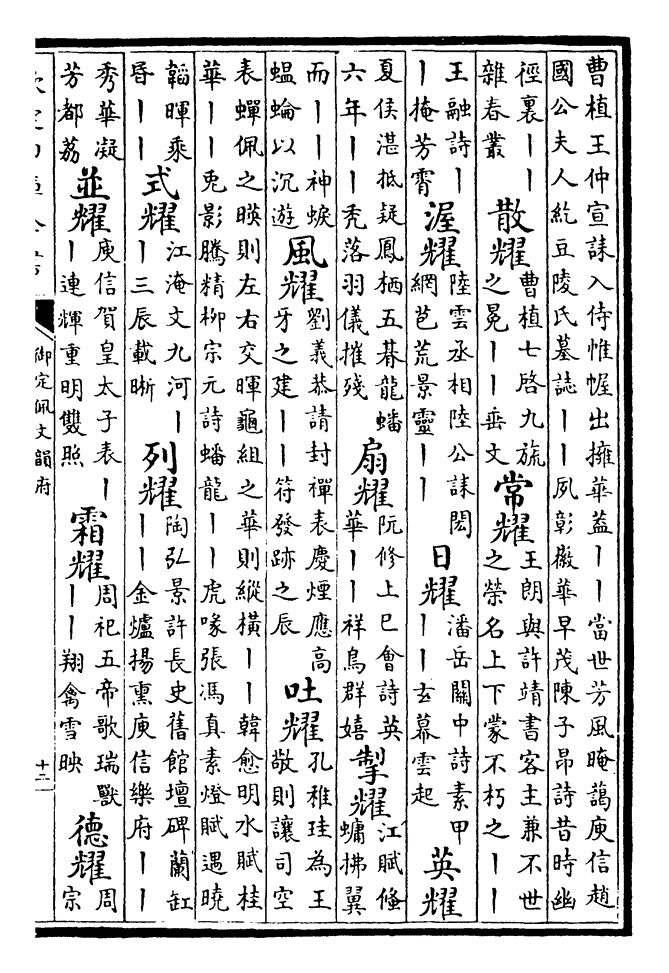 曹植王仲宣誄入侍帷幄出擁華蓋丨丨當世芳風晻藹庾信趙
國公夫人紇豆陵氏墓誌丨丨夙彰徽華早茂陳子昂詩昔時幽
徑裏丨丨
雜春叢
散耀
曹植七啓九旒
之冕丨丨垂文
常耀
王朗與許靖書客主兼不世
之榮名上下蒙不朽之丨丨
王融詩丨
丨掩芳霄
渥耀
陸雲丞相陸公誄閎
網芭荒景靈丨丨
日耀
潘岳關中詩素甲
丨丨玄幕雲起
英耀
夏侯湛抵疑鳳栖五朞龍蟠
六年丨丨禿落羽儀摧殘
扇耀
阮修上巳會詩英
華丨丨祥鳥群嬉
掣耀
江賦儵
𧑤拂翼
而丨丨神蜧
蝹蜦以沉遊
風耀
劉義恭請封禪表慶煙應高
牙之建丨丨符發跡之辰
吐耀
孔稚珪為王
敬則讓司空
表蟬佩之暎則左右交暉龜組之華則縱橫丨丨韓愈明水賦桂
華丨丨兎影騰精柳宗元詩蟠龍丨丨虎喙張馮真素燈賦遇曉
韜暉乘
昏丨丨
式耀
江淹文九河丨
丨三辰載晰
列耀
陶弘景許長史舊館壇碑蘭缸
丨丨金爐揚熏庾信樂府丨丨
秀華凝
芳都荔
並耀
庾信賀皇太子表丨
丨連輝重明雙照
霜耀
周祀五帝歌瑞獸
丨丨翔禽雪映
德耀
周
宗
御定佩文韻府
十二